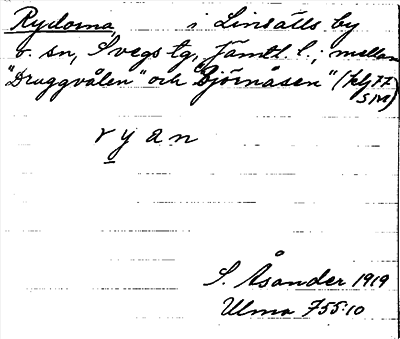 Rydorna, i Linsälls by
o. sn, Svegs tg, Jämtl. l.; mellan
"Druggvålen" och "Björnåsen" (kbl 77
SV)
ryan
S. Åsander 1919
Ulma 755:10